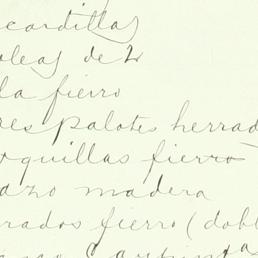 cordillas
oleas de 2
la fierro
res palotes herrad
quillas fierro
azo madera
rados fierro (dobl